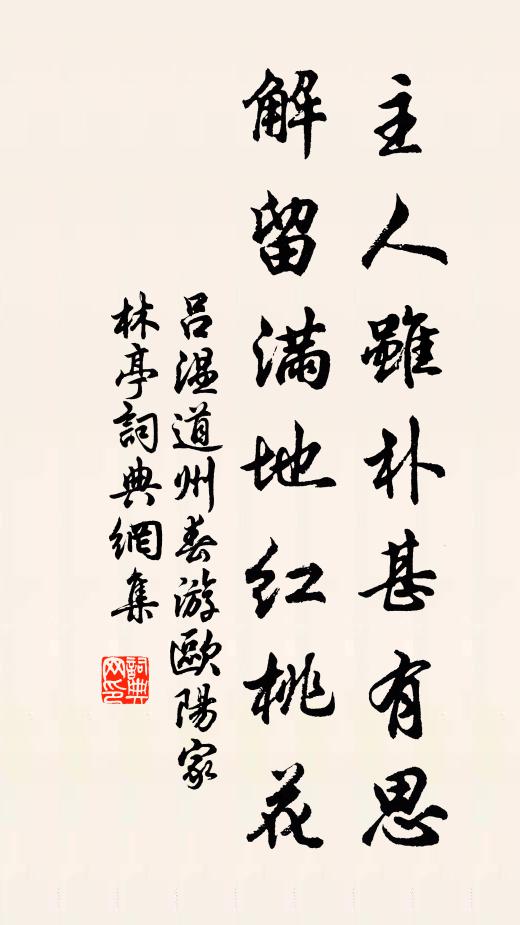 主人雖朴甚有思
解留滿地紅桃花
呂溫道州春游歐陽家
林亭詞典網集
詞典网印